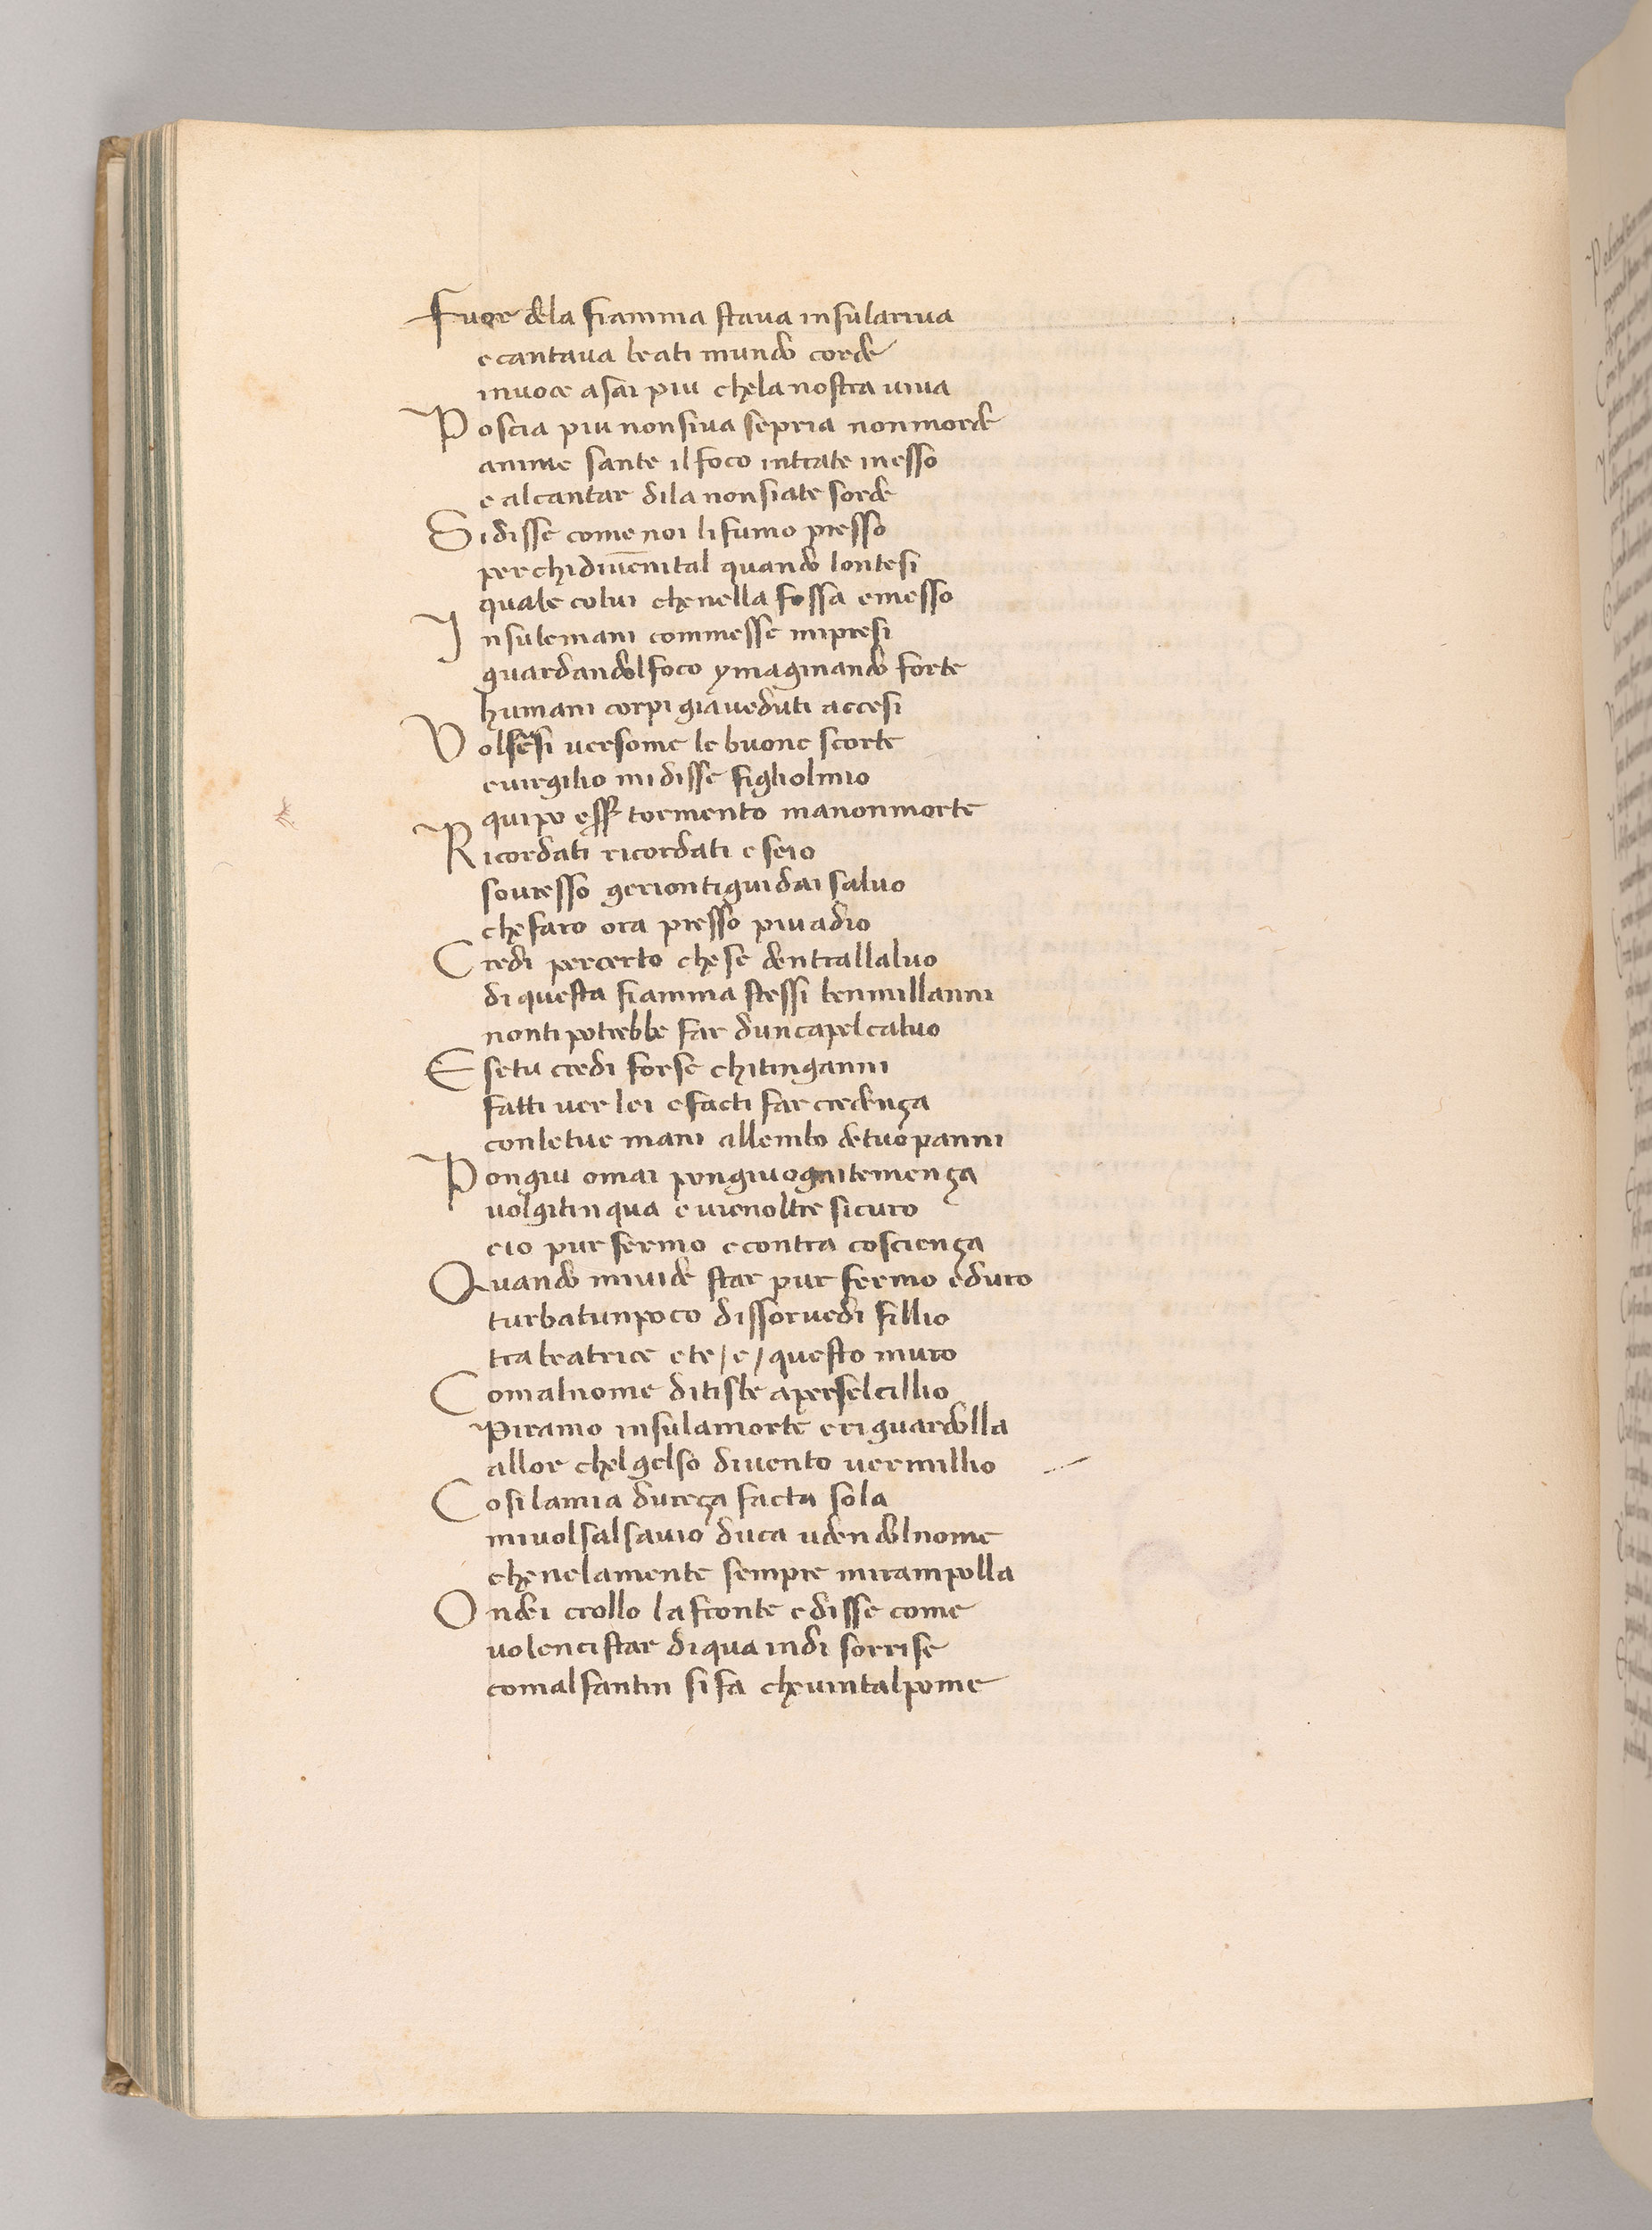 Fuor dela fiamma staua insulariua
ecantaua beati mundo corde
inuoce asai piu chela nostra uiua
Poscia piu nonsiua sepria nonmorde
anime sante ilfoco intrate inesso
e alcantar dila nonsiate sorde
Sidisse come noi lifumo presso
perchidiuēnital quando lontesi
quale colui chenella fossa emesso
Insulemani commesse mipresi
guardandolfoco ymaginando forte
humani corpi giaueduti accesi
Volsersi uersome le buone scorte
euirgilio midisse figliolmio
quipo esser tormento manonmorte
Ricordati ricordati eseio
souresso geriontiguidai saluo
chefaro ora presso piuadio
Credi percerto chese dentrallaluo
diquesta fiamma stessi benmillanni
nontipotrebbe far duncapelcaluo
Esetu credi forse chitinganni
fatti uer lei efacti far credença
conletue mani allembo detuopanni
Pongiu omai pongiuognitemença
uolgitinqua e uienoltre sicuro
eio pur fermo econtra cosciença
Quando miuide star pur fermo eduro
turbatunpoco dissoruedi fillio
tra beatrice ete/e/questo muro
Comalnome ditisbe aperselcillio
Piramo insulamorte eriguardolla
allor chelgelso diuento uermillio
Cosilamia dureça facta sola
miuolsalsauio duca udendolnome
chenelamente sempre mirampolla
Ondei crollo lafronte edisse come
uolencistar diqua indi sorrise
comalfantin sifa cheuintalpome